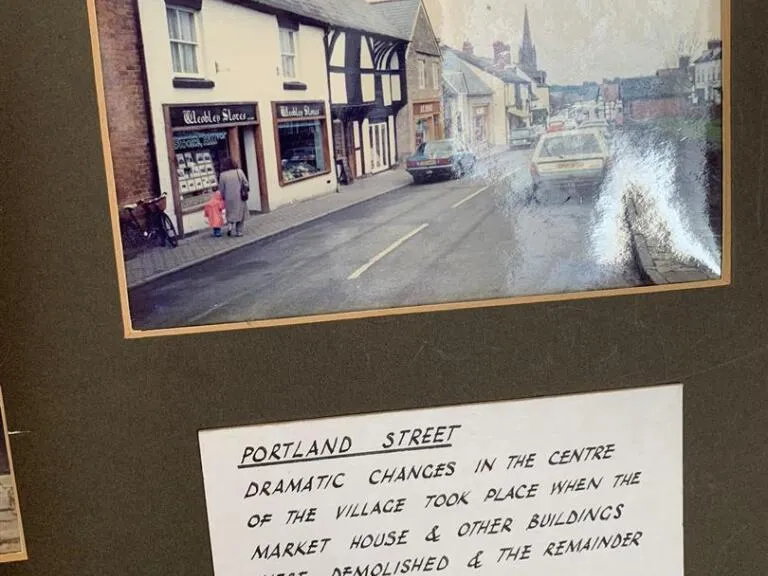 Weobley Stores
Weobley Stores
PORTLAND STREET
DRAMATIC CHANGES IN THE CENTRE
OF THE VILLAGE TOOK PLACE WHEN THE
MARKET HOUSE & OTHER BUILDINGS
WERE DEMOLISHED & THE REMAINDER